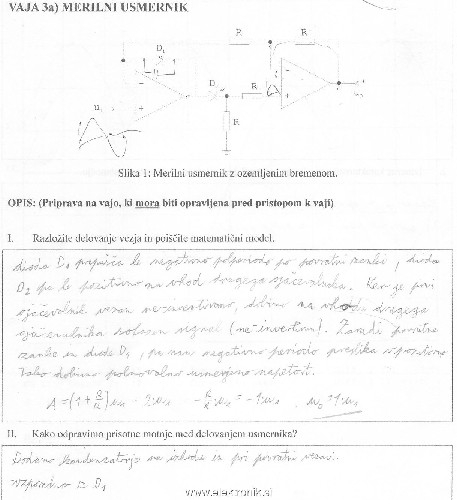 VAJA 3a) MERILNI USMERNIK
R R
D₁
D R
u₁
R
Slika 1: Merilni usmernik z ozemljenim bremenom.
OPIS: (Priprava na vajo, ki mora biti opravljena pred pristopom k vaji)
I. Razložite delovanje vezja in poiščite matematični model.
dioda D₁ prepušča le negativno polperiodo po povratni zanki, dioda
D₂ pa le pozitivno na vhod drugega ojačevalnika. Ker je prvi
ojačevalnik vezan neinvertirano, dobimo na vhodu drugega
ojačevalnika signal (ne invertiran). Zaradi povratne
zanke in diode D₁, pa nam negativno periodo preslika v pozitivno
Tako dobimo polnovalno usmerjeno napetost.
II. Kako odpravimo prisotne motnje med delovanjem usmernika?
Dodamo kondenzatorja na izhodu in pri povratni vezavi.
vzporedno z D₁
www.elektronik.si